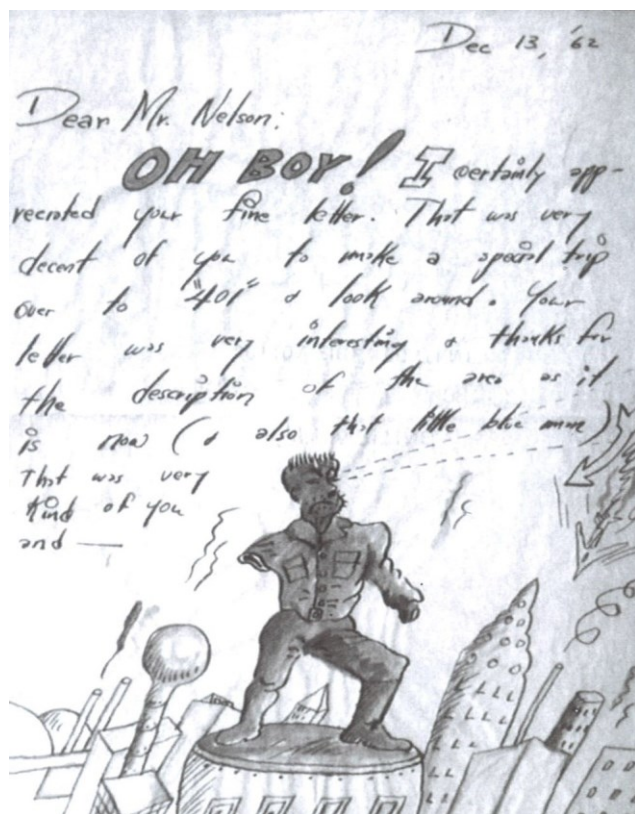 Dec 13, '62
Dear Mr. Nelson:
OH BOY! I certainly app-
recrated your fine letter. That was very
decent of you to make a special trip
over to "401" & look around. Your
letter was very interesting & thanks for
the description of the area as it
is now (& also that little blue man)
That was very
Kind of you
and —